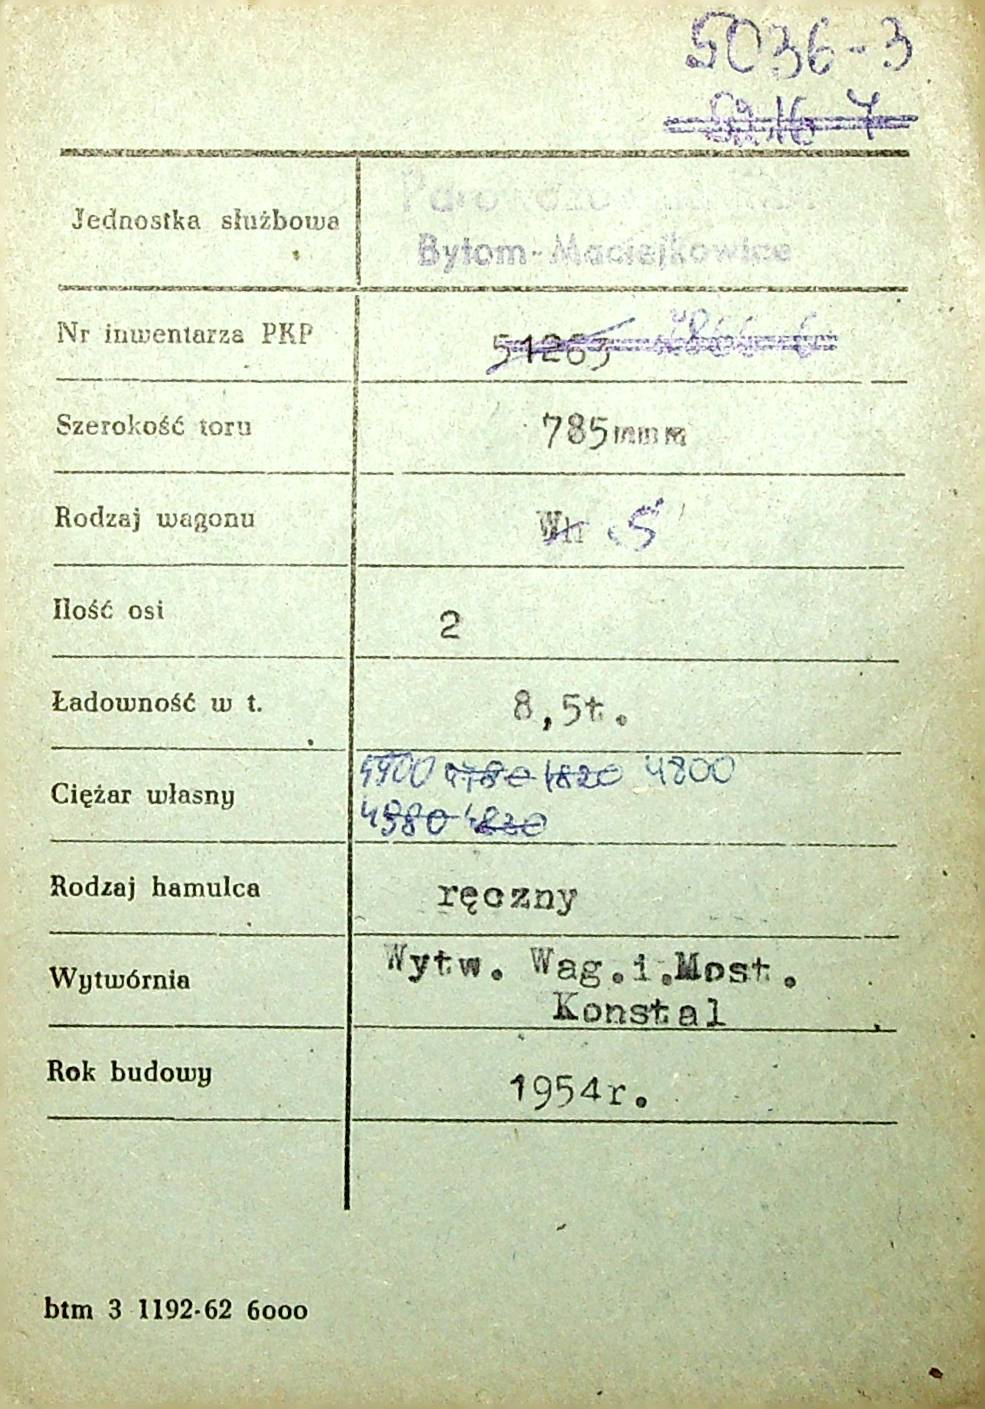 5036-3
Jednostka służbowa
Bytom-Maciejkowice
Nr inwentarza PKP 51263
Szerokość toru 785mm
Rodzaj wagonu Wh S
Ilość osi 2
Ładowność w t. 8,5t.
Ciężar własny 4900 4780 4820 4800
4980 4830
Rodzaj hamulca ręczny
Wytwórnia Wytw. Wag.i.Most.
Konstal
Rok budowy 1954r.
btm 3 1192-62 6000